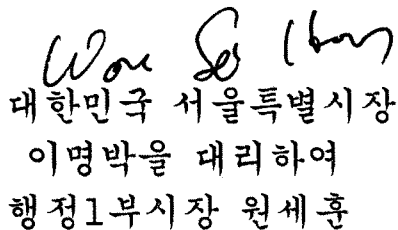 Won Sei Hoon
대한민국 서울특별시장
이명박을 대리하여
행정1부시장 원세훈